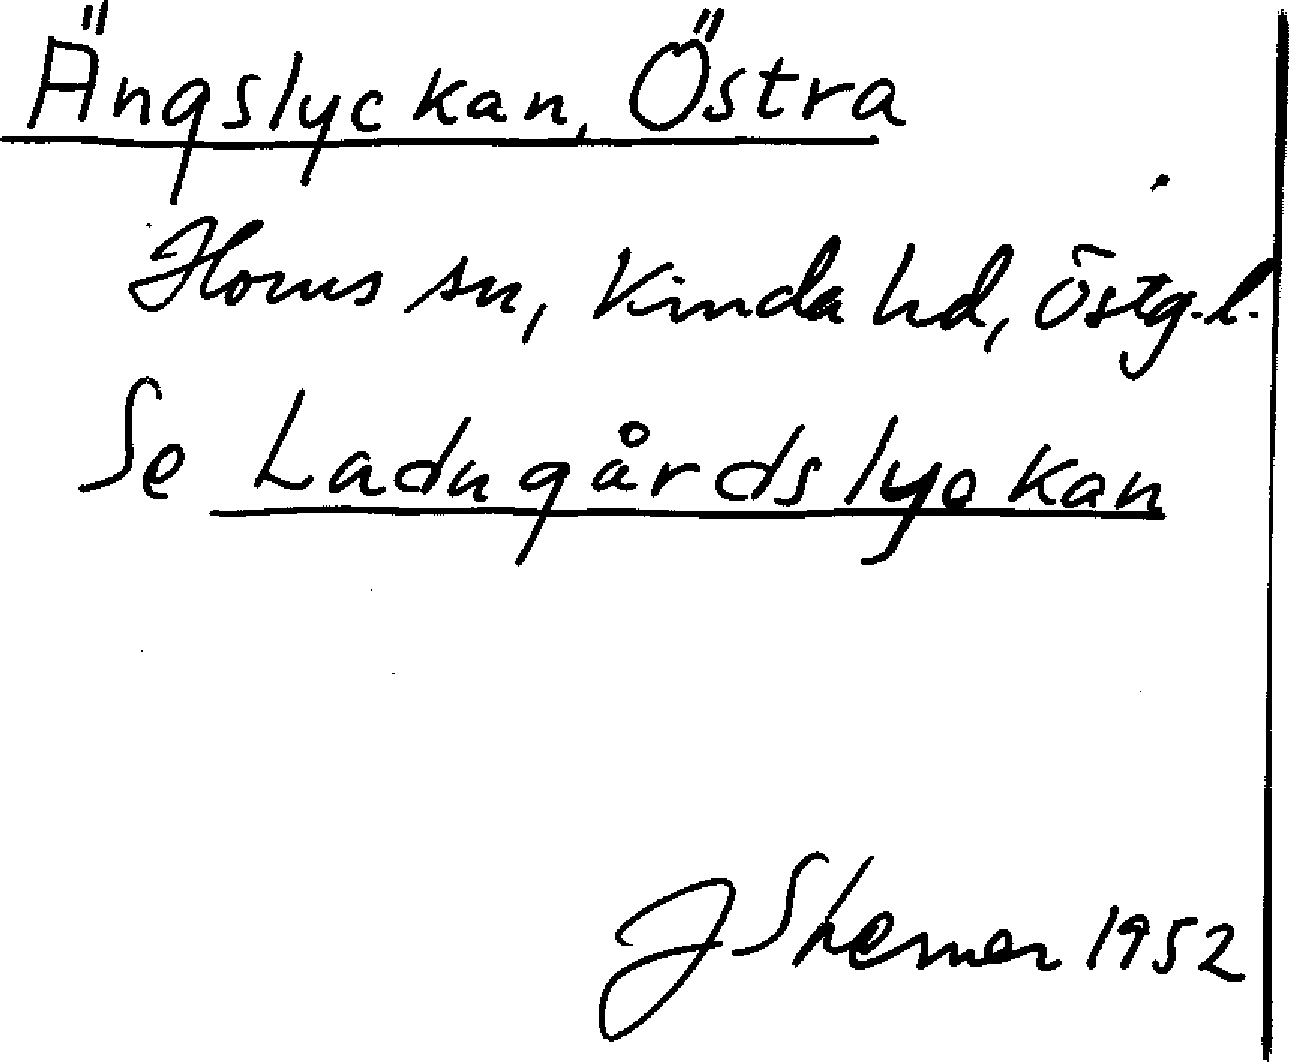 Ängslyckan, Östra
Horns sn, Kinda hd, Östg.l.
Se Ladugårdslyckan
J 1952